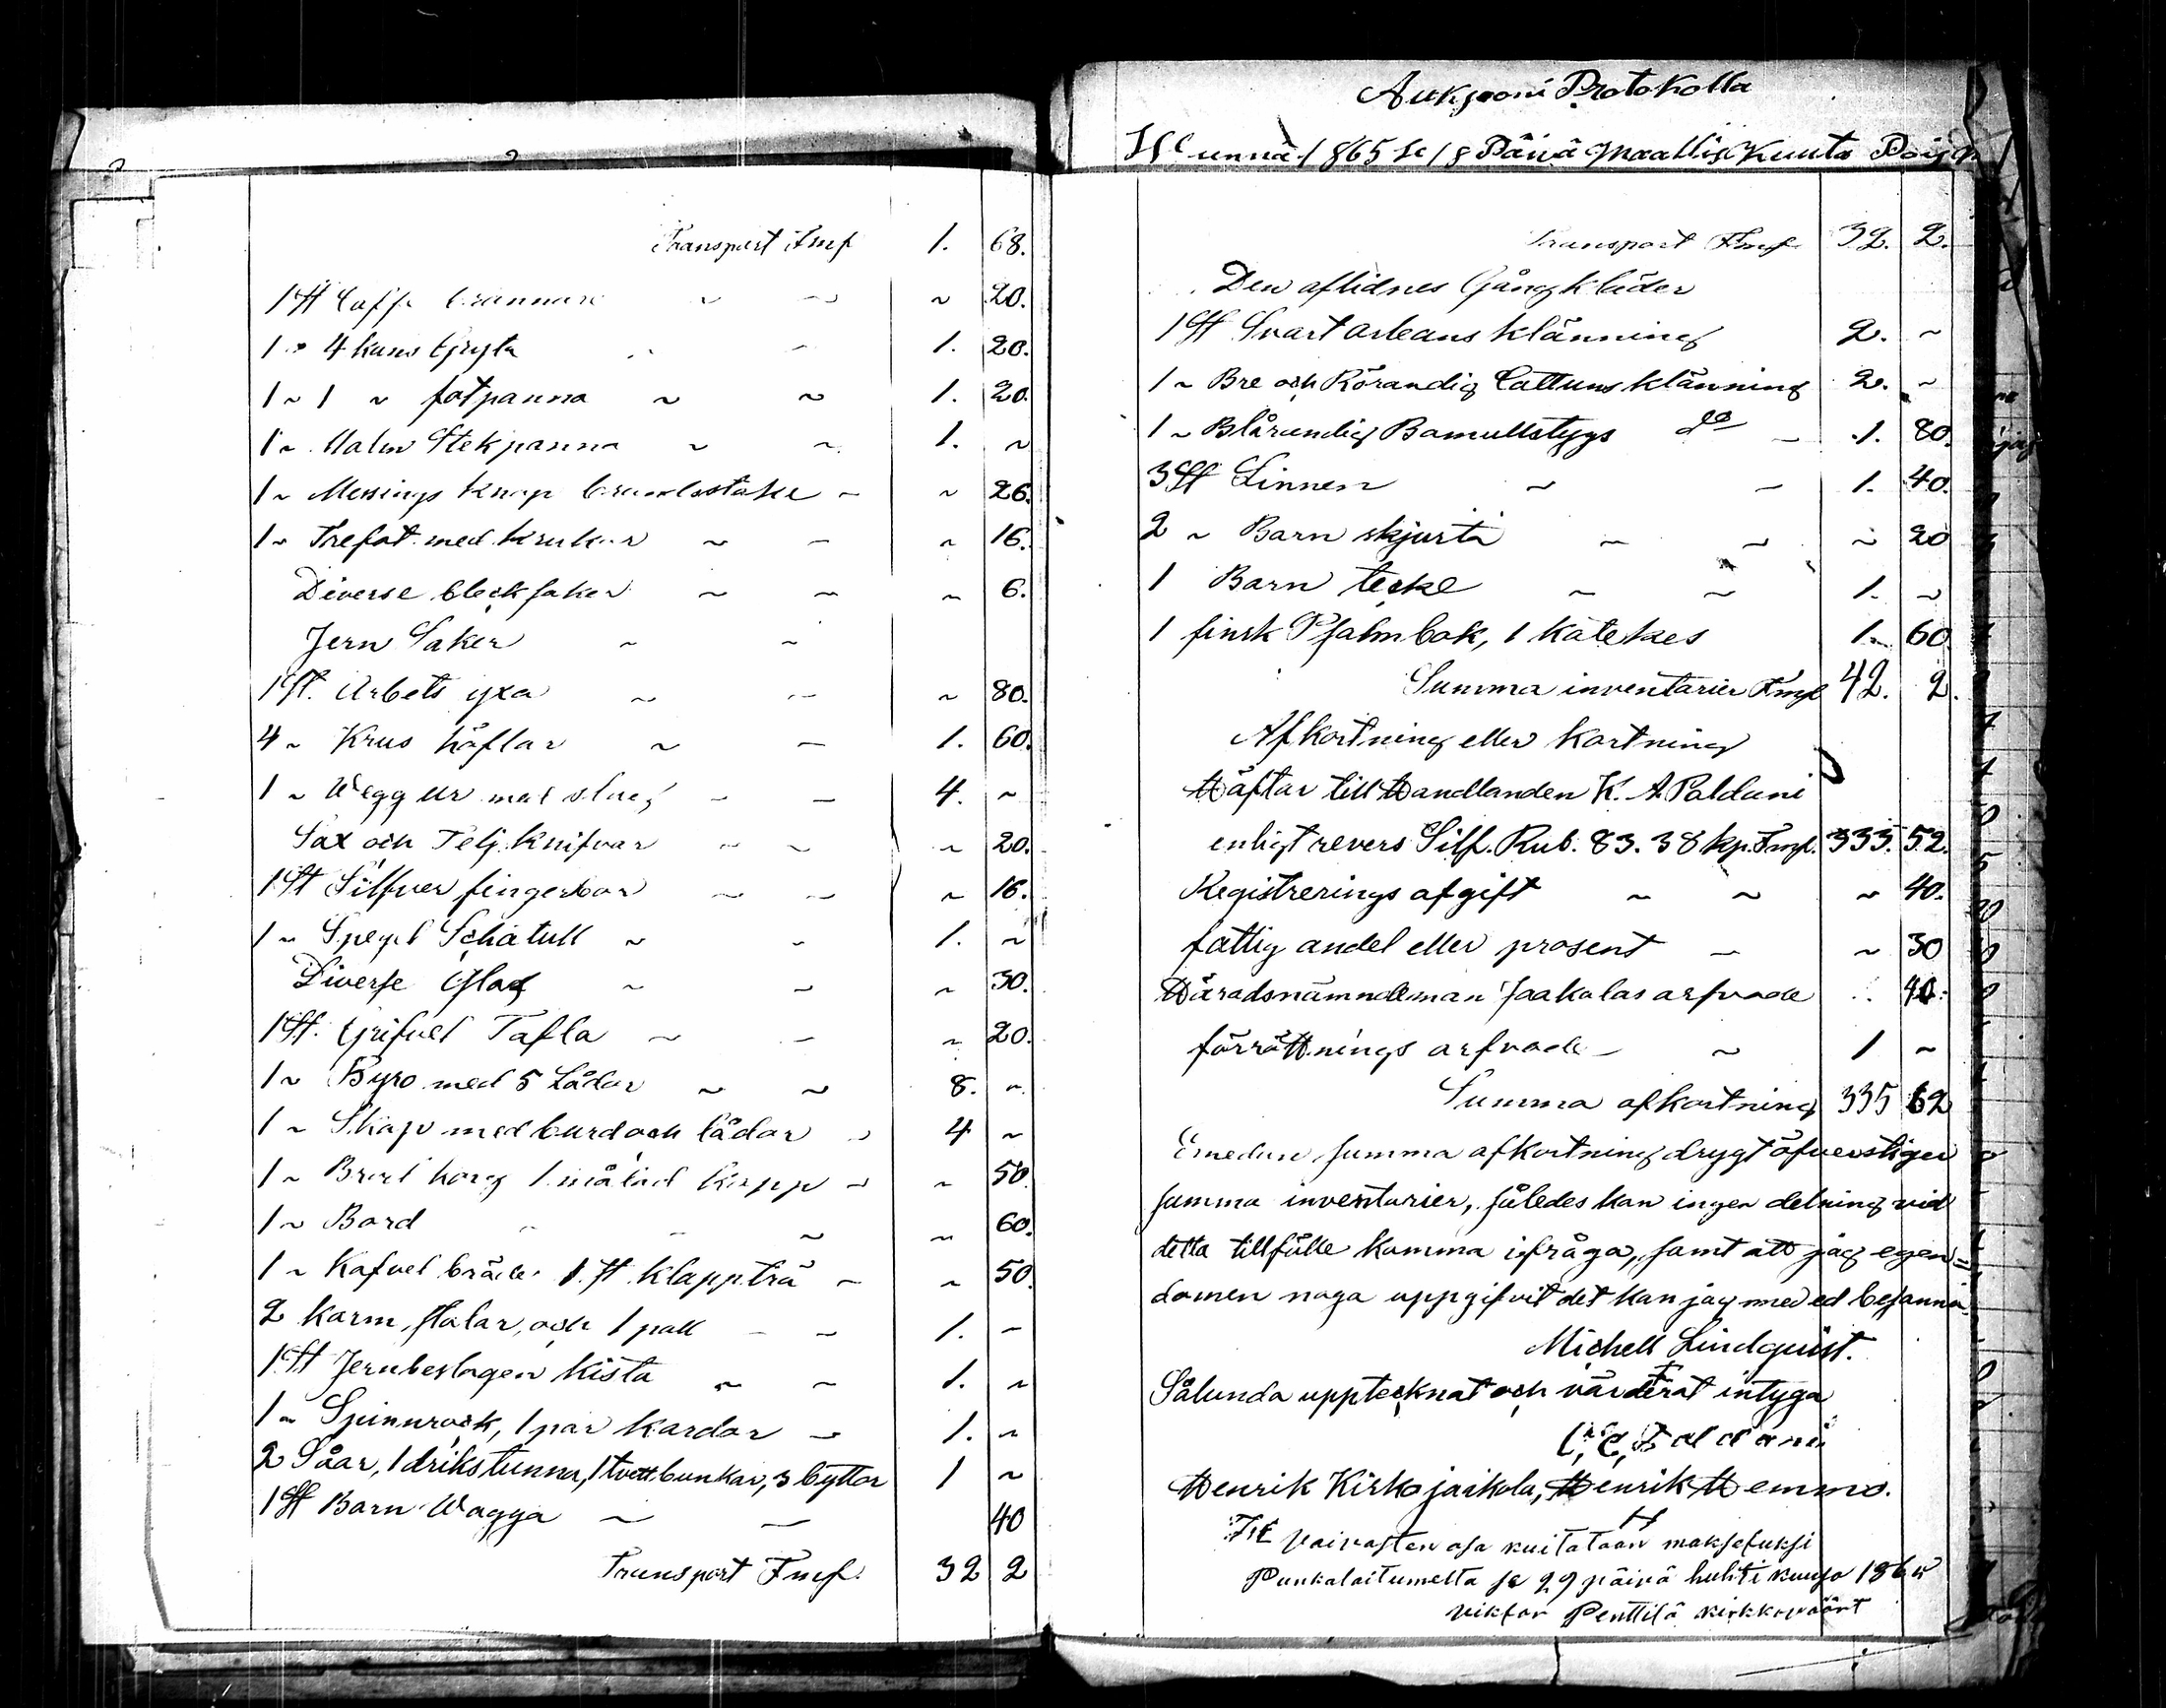 Transport Fmk 1. 68.
1 st Caffe brännare ~ ~ ~ 20.
1 " 4 kans Gryta 1. 20.
1 ~ 1 ~ fotpanna ~ ~ 1. 20.
1 ~ Malm Stekpanna ~ ~ 1. ~
1 ~ Messings Knap ~ ~ 26.
1 ~ Trefot med krukor ~ ~ ~ 16.
Diverse bleck saker ~ ~ ~ 6.
Jern Saker ~ ~
1 st. Arbets yxa ~ ~ ~ 80.
4 ~ Krus ~ ~ 1. 60.
1 ~ Wegg Ur med slag ~ ~ 4. ~
Sax och Telj Knifvar ~ ~ ~ 20.
1 st Silfver fingerbor ~ ~ ~ 16.
1 ~ Spegel Schatull ~ ~ 1. ~
Diverse Glas ~ ~ ~ 30.
1 st. Grifvel Tafla ~ ~ ~ 20.
1 ~ Byro med 5 Lådor ~ ~ 8. ~
1 ~ Skåp med burd och lådor ~ 4 ~
1 ~ Bröd korg 1 målad Kapp ~ ~ 50
1 ~ Bord ~ ~ ~ ~ 60.
1 ~ Kafvel bräde 1 st klappträ ~ ~ 50
2 Karm stolar, och 1 pall ~ ~ 1. ~
1 st Jernbeslagen Kista ~ ~ 1. ~
1 ~ Spinnrock, 1 par Kardor ~ 1. ~
2 Såar, 1 drikstunna, 1 tvettbunkar, 3 byttor 1 ~
1 st Barn Wagga ~ ~ 40
Transport Fmk. 32 2
Aukjooni Protokolla
1865 se 18 Päivä Maallis Kuuta
Transport Fmk. 32. 2.
Den aflidnes Gångkläder
1 st Svart orleans klänning 2. ~
1 ~ Bre och Rörandig Cattuns klänning 2. ~
1 ~ Blårandig Bomullstygs do ~ 1. 80.
3 st Linnen ~ ~ 1. 40.
2 ~ Barn skjurti ~ ~ ~ 20
1 Barn tecke ~ ~ 1. ~
1 finsk Psalmbok, 1 Katekes 1. 60
Summa inventarier Fmk 42. 2.
Afkortning eller Kortning
Häftar till Handlanden K. A Paldani
enligt revers Silf. Rub. 83. 38 kp. Fmk. 333. 52.
Registrerings afgift ~ ~ ~ 40.
fattig andel eller prosent ~ ~ 30
Häradsnämndeman Jaakolas arfvode 40.
förrättnings arfvode ~ ~ 1 ~
Summa afkortning 335 62
Emedan summa afkortning drygt öfverstiger
summa inventarier, således kan ingen delning vid
detta tillfälle komma ifråga, samt att jag egen=
domen noga uppgifvit det kan jag med ed bejanna.
Michell Lindquist.
Sålunda upptecknat och värderat intyga
Paldani
Henrik Kirkojaikola, Henrik Hemmo.
vaivasten osa kuitataan maksetuksi
Punkalaitumella se 29 päivä huhti kuusa 186
viktor Penttilä kirkkoväärt